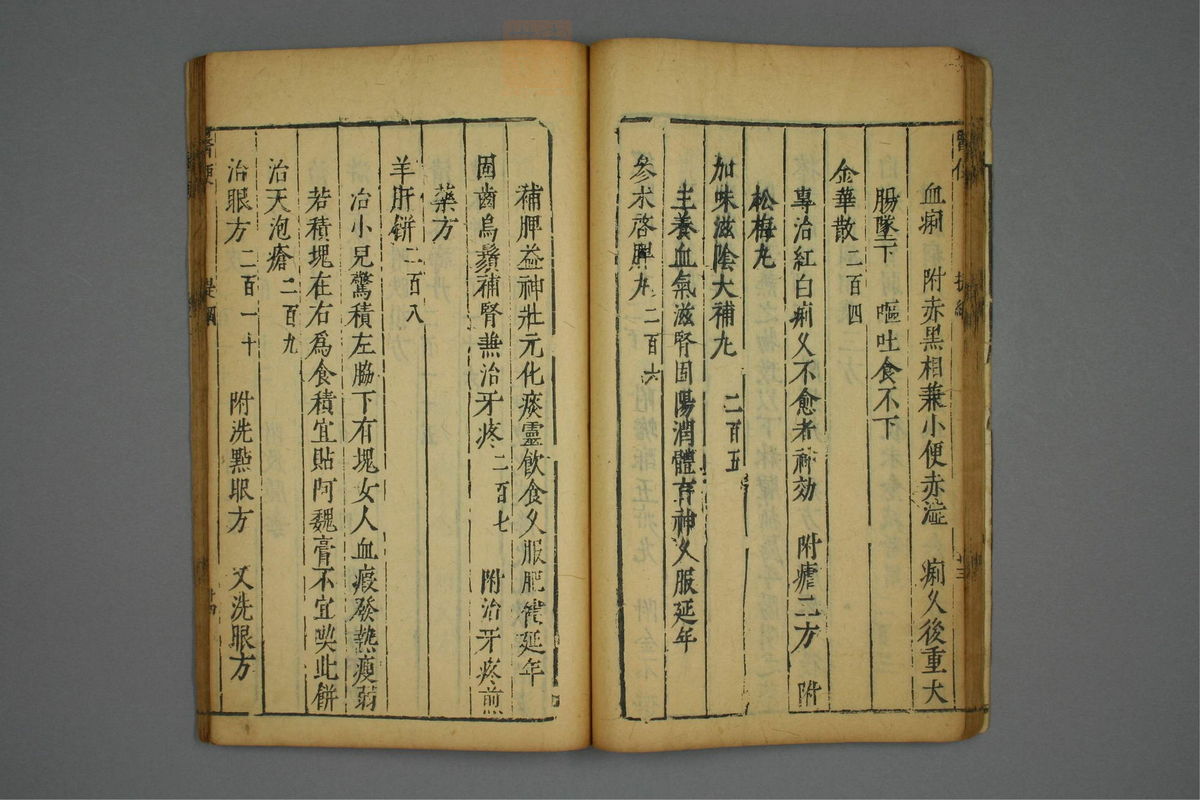 血痢　附赤黑相兼小便赤澁　痢久後重大
腸墜下　嘔吐食不下
金華散二百四
專治紅白痢久不愈者神効　附瘧二方　附
松梅丸
加味滋陰大補丸　二百五
主養血氣滋腎固陽潤體育神久服延年
參朮啓脾丸二百六
補脾益神壯元化痰靈飲食久服肥健延年
固齒烏鬚補腎兼治牙疼二百七　附治牙疼煎
藥方
羊肝餅二百八
治小兒驚積左脇下有塊女人血瘕發熱瘦弱
若積塊在右爲食積宜貼阿魏膏不宜喫此餅
治天泡瘡二百九
治眼方二百一十　附洗點眼方　又洗眼方
醫便
提綱
十四